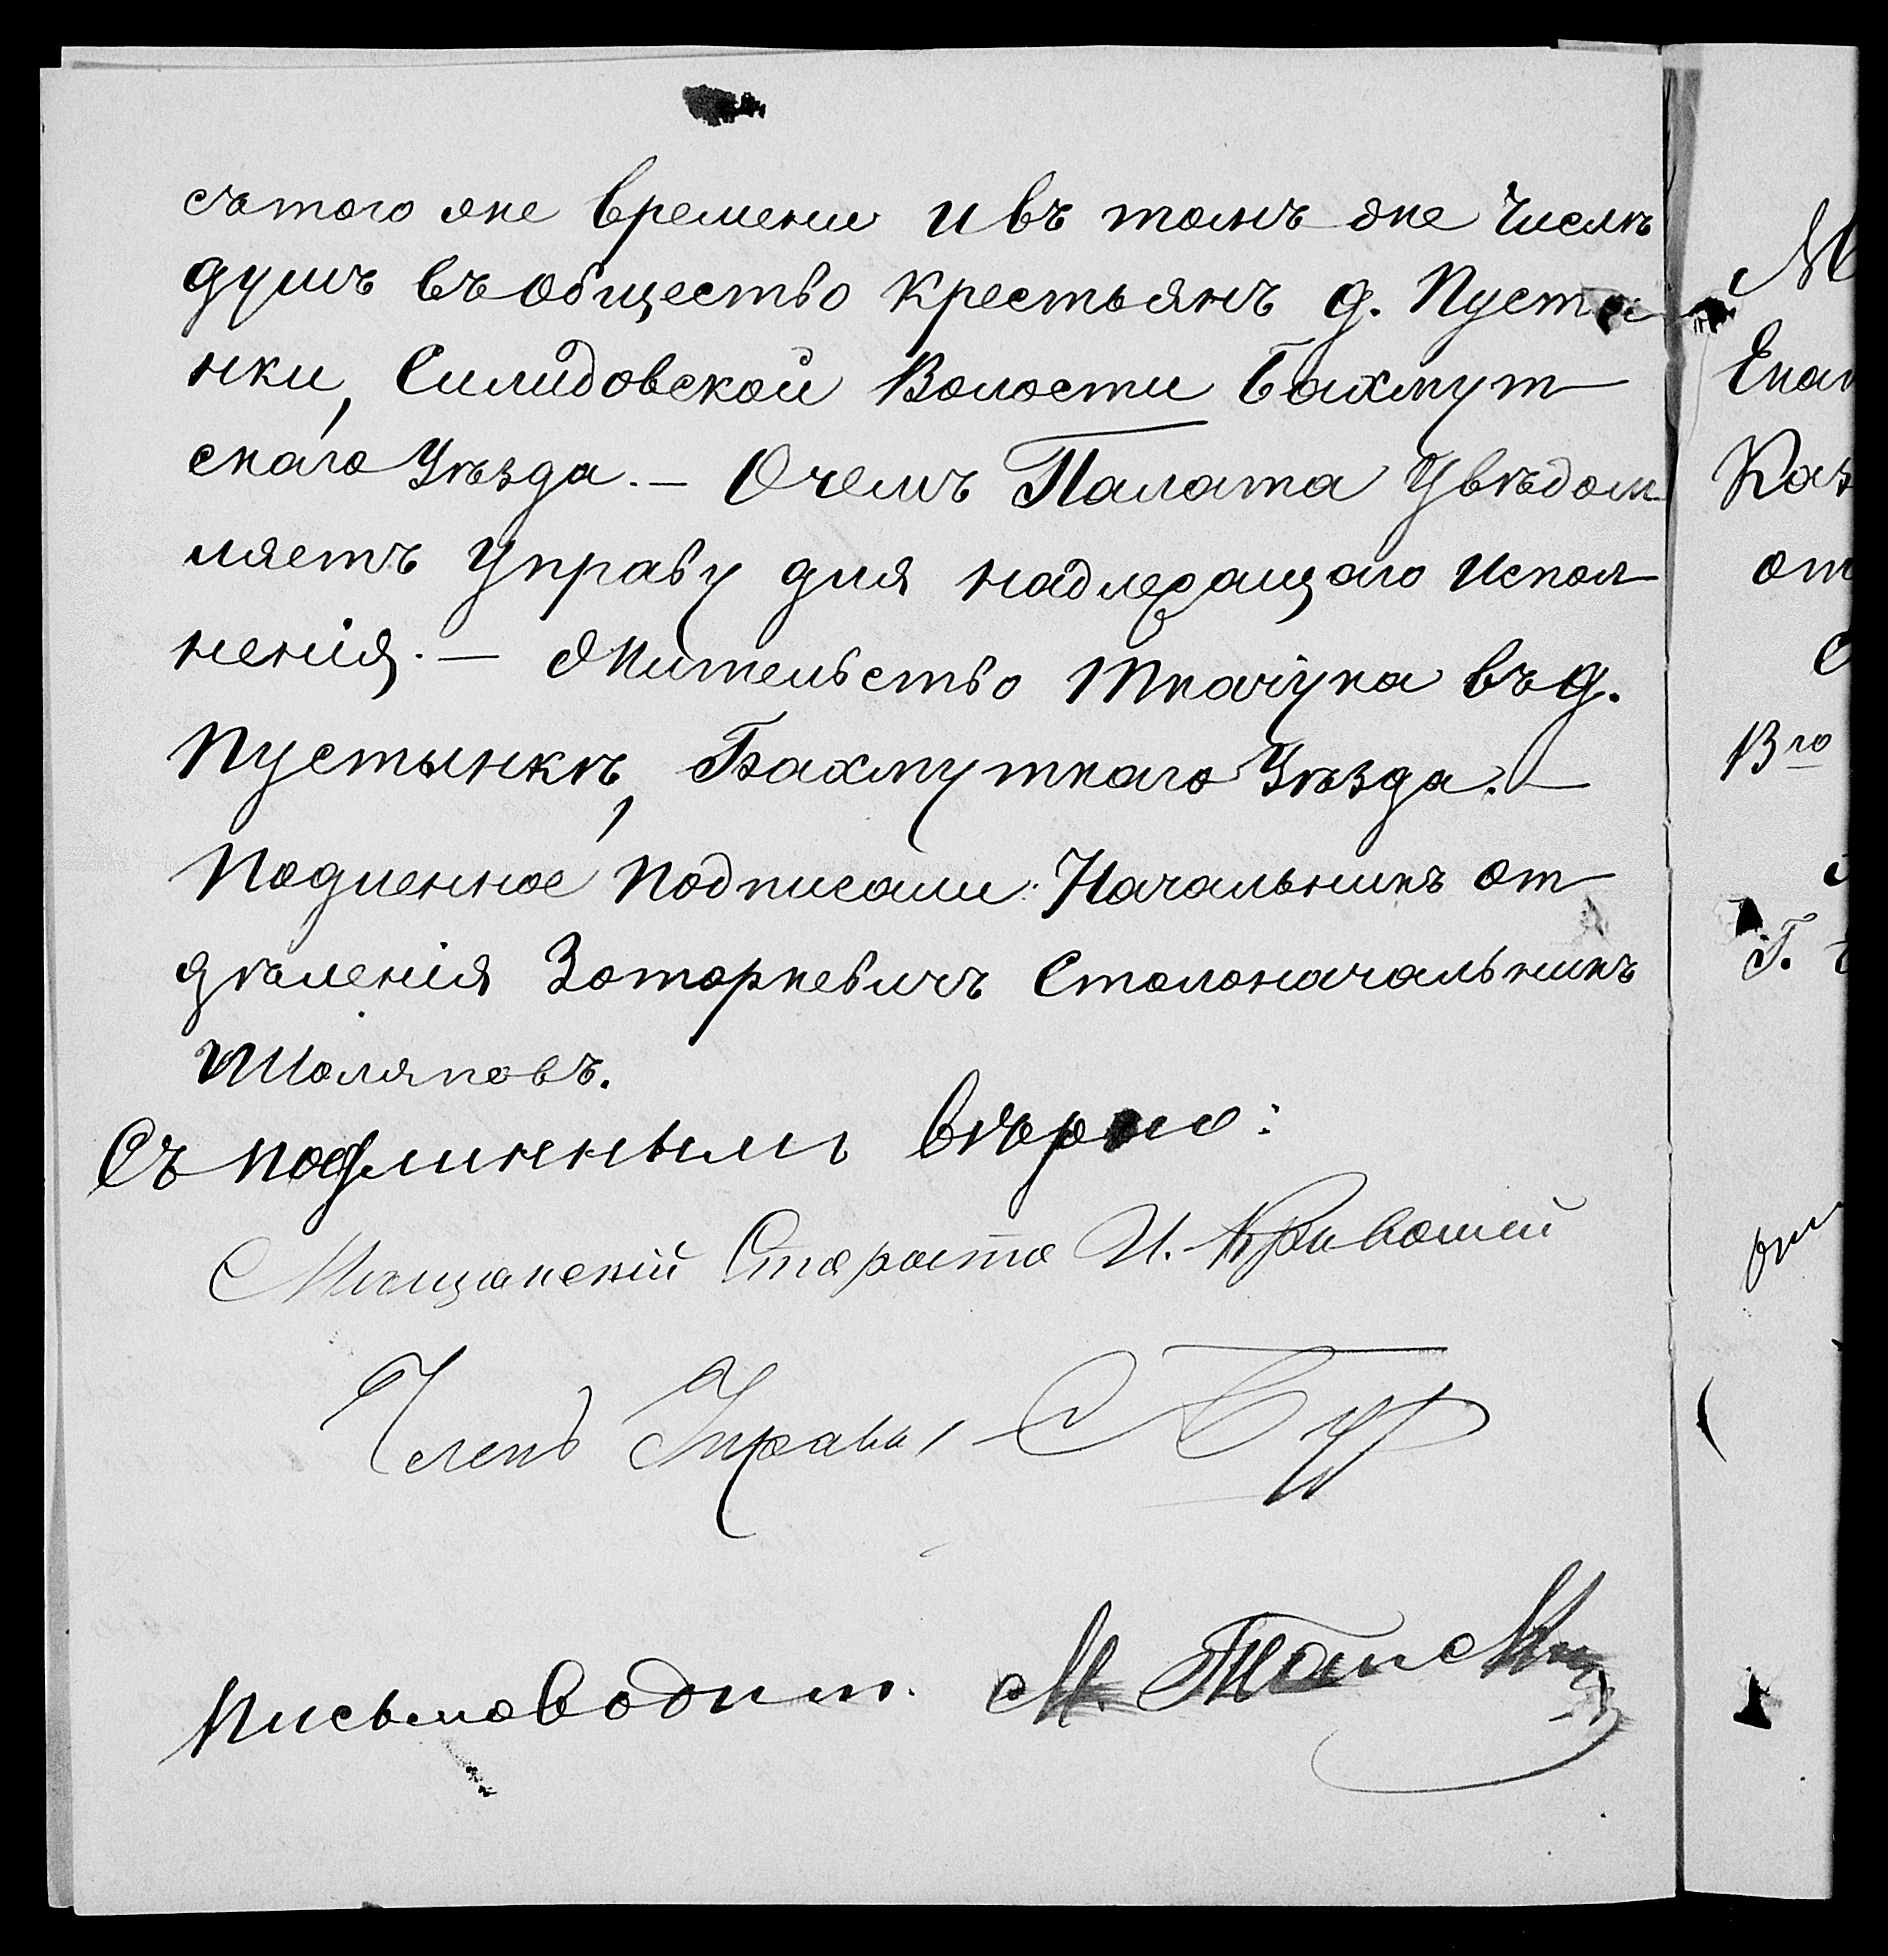 съ того же времени и въ томъ же числѣ
душъ въ общество крестьянъ д. Пусты
нки, Силидовской Волости Бахмут
скаго Уѣзда. — О чемъ Палата Увѣдом
ляетъ Управу для надлежащаго испол
ненія. — Жительство Ткачука въ д.
Пустынкѣ, Бахмуткаго Уѣзда. —
Подленное подписали: Начальникъ от
дѣленія Заторкевичъ Столоначальникъ
Шоляповъ.
Съ подлиннымъ вѣрно:
Мѣщанскій Староста И. Кривошей
Членъ Управы
Письмоводит. М.
М
Екат
Каз
от
В го
Г.